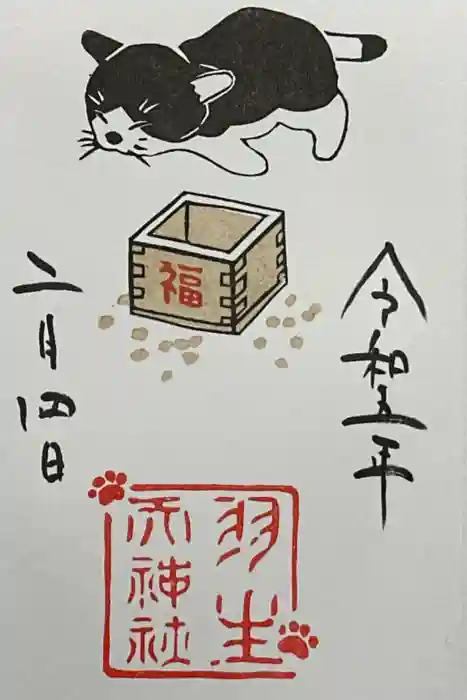 令和五年
福
二月四日
羽生
天神社